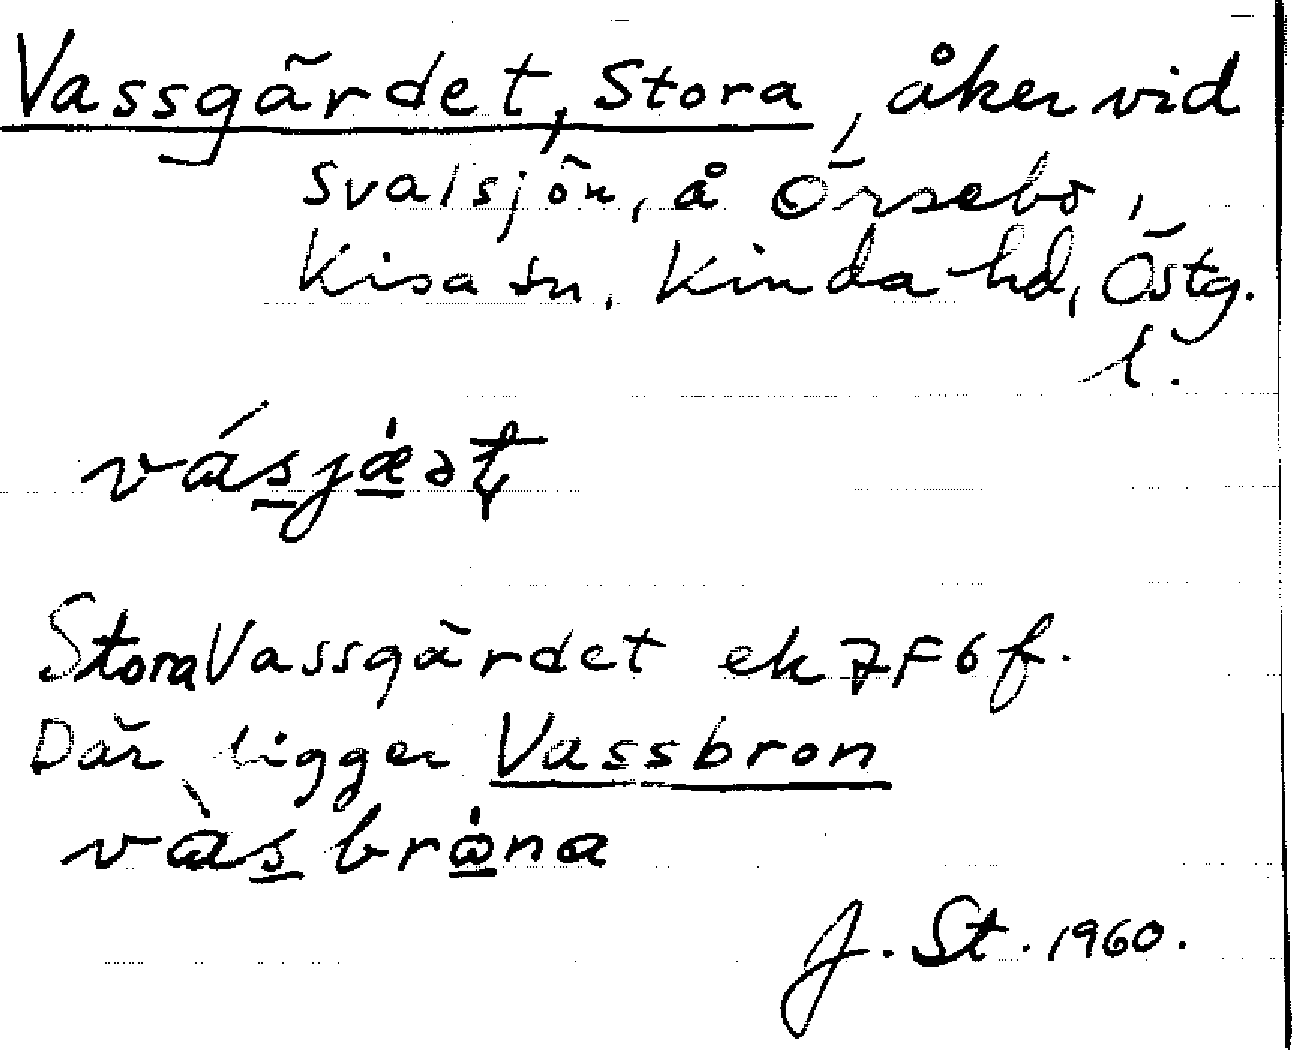 Vassgärdet, Stora, åker vid
Svalsjön, å Örsebo,
Kisa sn. Kinda hd, Östg.
l.
vásjæ̀ət
Stora Vassgärdet ek 7F6f.
Där ligger Vassbron
vàsbrȯna
J. St. 1960.